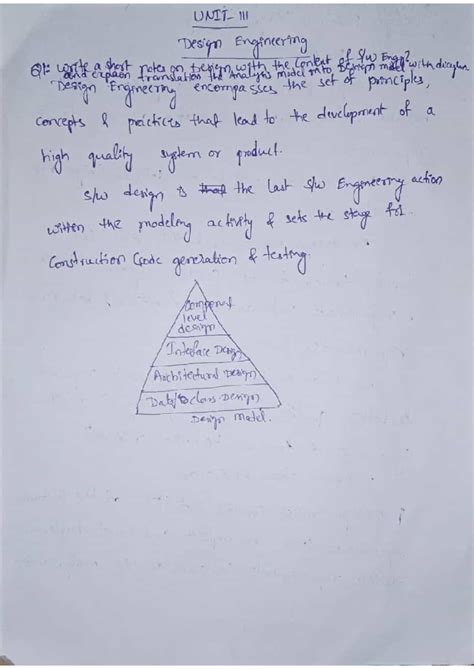 UNIT- III
Design Engineering
Q1: Write a short notes on Design with the Context of S/W Engg?
and explain translation the Analysis model into Design model with diagram
Design Engineering encompasses the set of principles,
concepts & practices that lead to the development of a
high quality system or product.
S/w design is the last S/w Engineering action
within the modeling activity & sets the stage for
Construction (code generation & testing.
Component
level
design
Interface Design
Architectural Design
Data/class Design
Design Model.